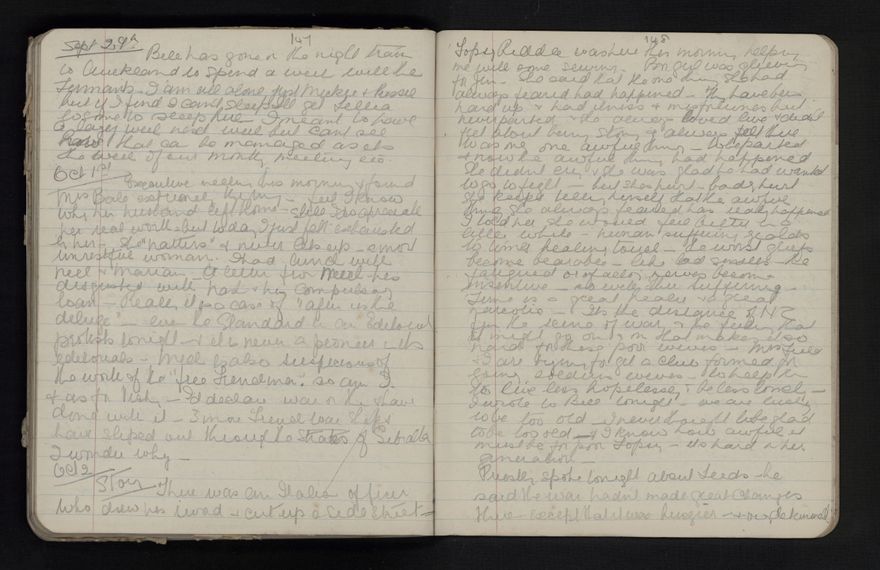 147
Sept 29th
Bee has gone on the night train
to Auckland to spend a week with the
I am all alone just Mickey &
but if I find I can't sleep I'll get
to come to sleep here I meant to have
a lazy week next week but can't see
how that can be managed as it's
the week of our monthly meeting etc
Oct 1st
Executive meeting this morning & found
Mrs extremely trying - feel I know
why her husband left home - she's so
her real worth - but today I just felt exhausted
by her - she "natters" & never lets up - a most
unrestful woman. I had lunch with
& Marian - A letter from his
disgusted with & his compulsory
loan - Really it is a case of "after us the
deluge" - even the Standard in an Editorial
protests tonight - & it is never a pioneer in its
editorials - is also suspicious of
the work of the "free Frenchmen" so am I
& as for Vichy - I'd declare war on them & have
done with it - 3 more French war ships
have slipped out through the straits of Gibraltar
I wonder why -
Oct 2
Story
There was an Italian officer
who drew his sword & cut up a side street -
148
Topsy was here this morning helping
me with some sewing. Poor girl was grieving
for Jim. She said that the one thing she had
always feared had happened - They have been
hard up & had illness & misfortunes but
never parted & she always loved love & didn't
fret about being stony & always felt there
was one awful thing - to be parted
& now the awful thing had happened
She didn't cry & she was glad he had wanted
to go to fight - but she's hurt - badly hurt
She keeps telling herself that the awful
thing she always feared has really happened
I told her she would feel better in a
little while - human suffering yields
to time's healing touch - the worst griefs
become bearable - like bad smells - the
fatigued olfactory nerves become
insensitive - so with our suffering -
Time is a great healer & a great
narcotic - It's the distance of NZ
from the scene of war & the feeling that
it might go on & on that makes it so
hard for these poor wives - Mrs
& I are trying to get a club formed for
young soldiers wives - to help them
to live less hopelessly & be less lonely -
I wrote to Bee tonight "we are lucky
to be too old - I never thought I'd be glad
to be too old - & I know how awful it
must be for poor Topsy - it's hard on her
generation -
Priestley spoke tonight about Leeds - he
said the war hadn't made great changes
there - except that it was busier - & more determined